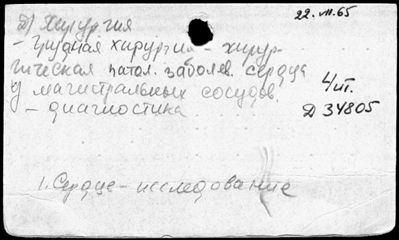 22.III.65
Д) Хирургия
- грудная хирургия - хирур-
гическая патол. заболев. сердца
и магистральных сосудов,
4 ит.
- диагностика
Д 34805
1. Сердце - исследование